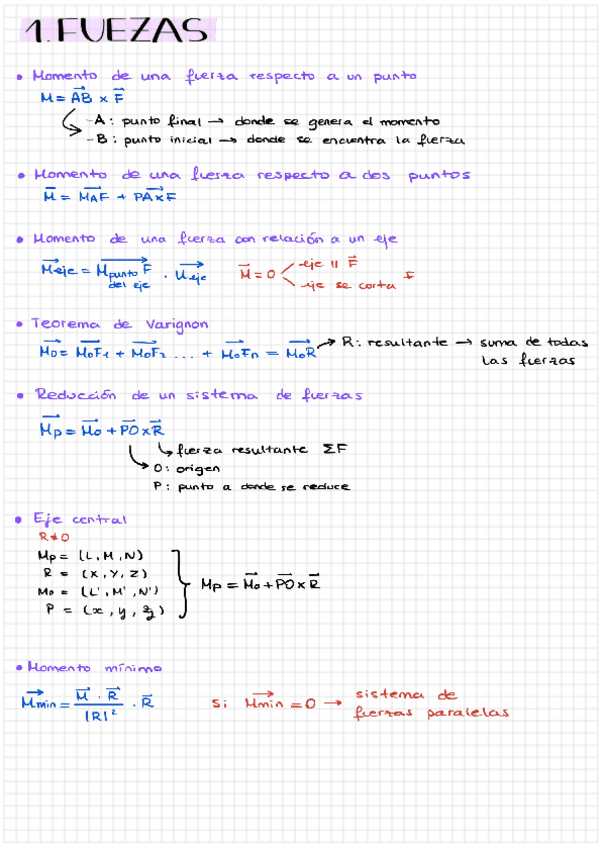 1. FUEZAS
• Momento de una fuerza respecto a un punto
M = AB x F
- A: punto final → donde se genera el momento
- B: punto inicial → donde se encuentra la fuerza
• Momento de una fuerza respecto a dos puntos
M = MAF + PA x F
• Momento de una fuerza con relación a un eje
Meje = Mpunto F · Ueje
del eje
M = 0
eje || F
eje se corta F
• Teorema de Varignon
Mo = MoF1 + MoF2 ... + MoFn = MoR → R: resultante → suma de todas
las fuerzas
• Reducción de un sistema de fuerzas
Mp = Mo + PO x R
fuerza resultante ΣF
O: origen
P: punto a donde se reduce
• Eje central
R ≠ 0
Mp = (L, M, N)
R = (X, Y, Z)
Mo = (L', M', N')
P = (x, y, z)
Mp = Mo + PO x R
• Momento mínimo
Mmin = M · R / |R|² · R
Si Mmin = 0 → sistema de
fuerzas paralelas